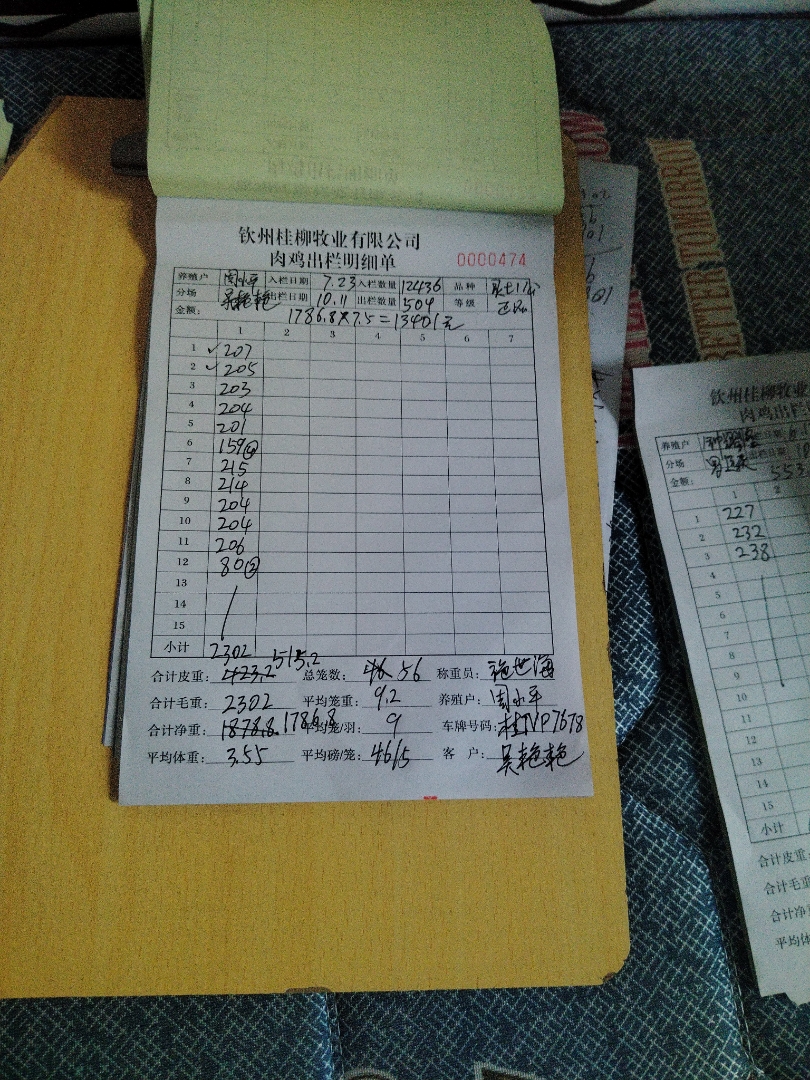 钦州桂柳牧业有限公司
肉鸡出栏明细单 0000474
养殖户 周小平 入栏日期 7.23 入栏数量 12436 品种
分场 吴艳艳 出栏日期 10.11 出栏数量 504 等级 正品
金额: 1786.8×7.5=13401元
1 2 3 4 5 6 7
1 ✓ 207
2 ✓ 205
3 203
4 204
5 201
6 159④
7 215
8 214
9 204
10 204
11 206
12 80②
13
14
15
小计 2302
合计皮重: 423.2 515.2 总笼数: 46 56 称重员:
合计毛重: 2302 平均笼重: 9.2 养殖户: 周小平
合计净重: 1878.8 1786.8 平均笼/羽: 9 车牌号码: 桂NP7678
平均体重: 3.55 平均磅/笼: 46/5 客 户: 吴艳艳
BETTER TOMORROW
钦州桂柳牧业有
肉鸡出栏
养殖户
分场
金额: 553
1 2
1 227
2 232
3 238
4
5
6
7
8
9
10
11
12
13
14
15
小计
合计皮重:
合计毛重
合计净重
平均体